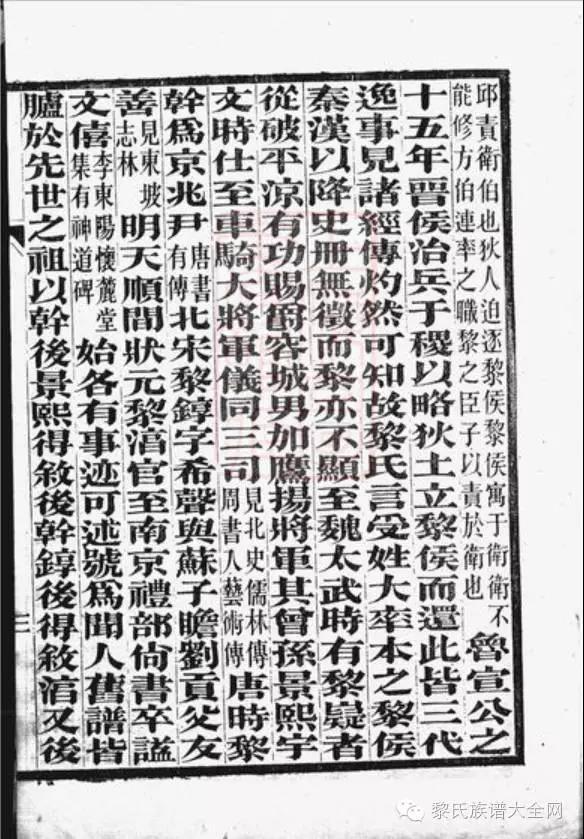 邱責衛伯也狄人迫逐黎侯黎侯寓于衛衛不
能修方伯連率之職黎之臣子以責於衛也
魯宣公之
十五年晋侯治兵于稷以略狄土立黎侯而還此皆三代
逸事見諸經傳灼然可知故黎氏言受姓大率本之黎侯
秦漢以降史冊無徵而黎亦不顯至魏太武時有黎嶷者
從破平涼有功賜爵容城男加鷹揚將軍其曾孫景熙字
文時仕至車騎大將軍儀同三司
見北史儒林傳
周書入藝術傳
唐時黎
幹爲京兆尹
唐書
有傳
北宋黎錞字希聲與蘇子瞻劉貢父友
善
見東坡
志林
明天順間狀元黎淳官至南京禮部尙書卒謚
文僖
李東陽懷麓堂
集有神道碑
始各有事迹可述號爲聞人舊譜皆
臚於先世之祖以幹後景熙得敘後幹錞後得敘淳又後
三
黎氏族谱大全网